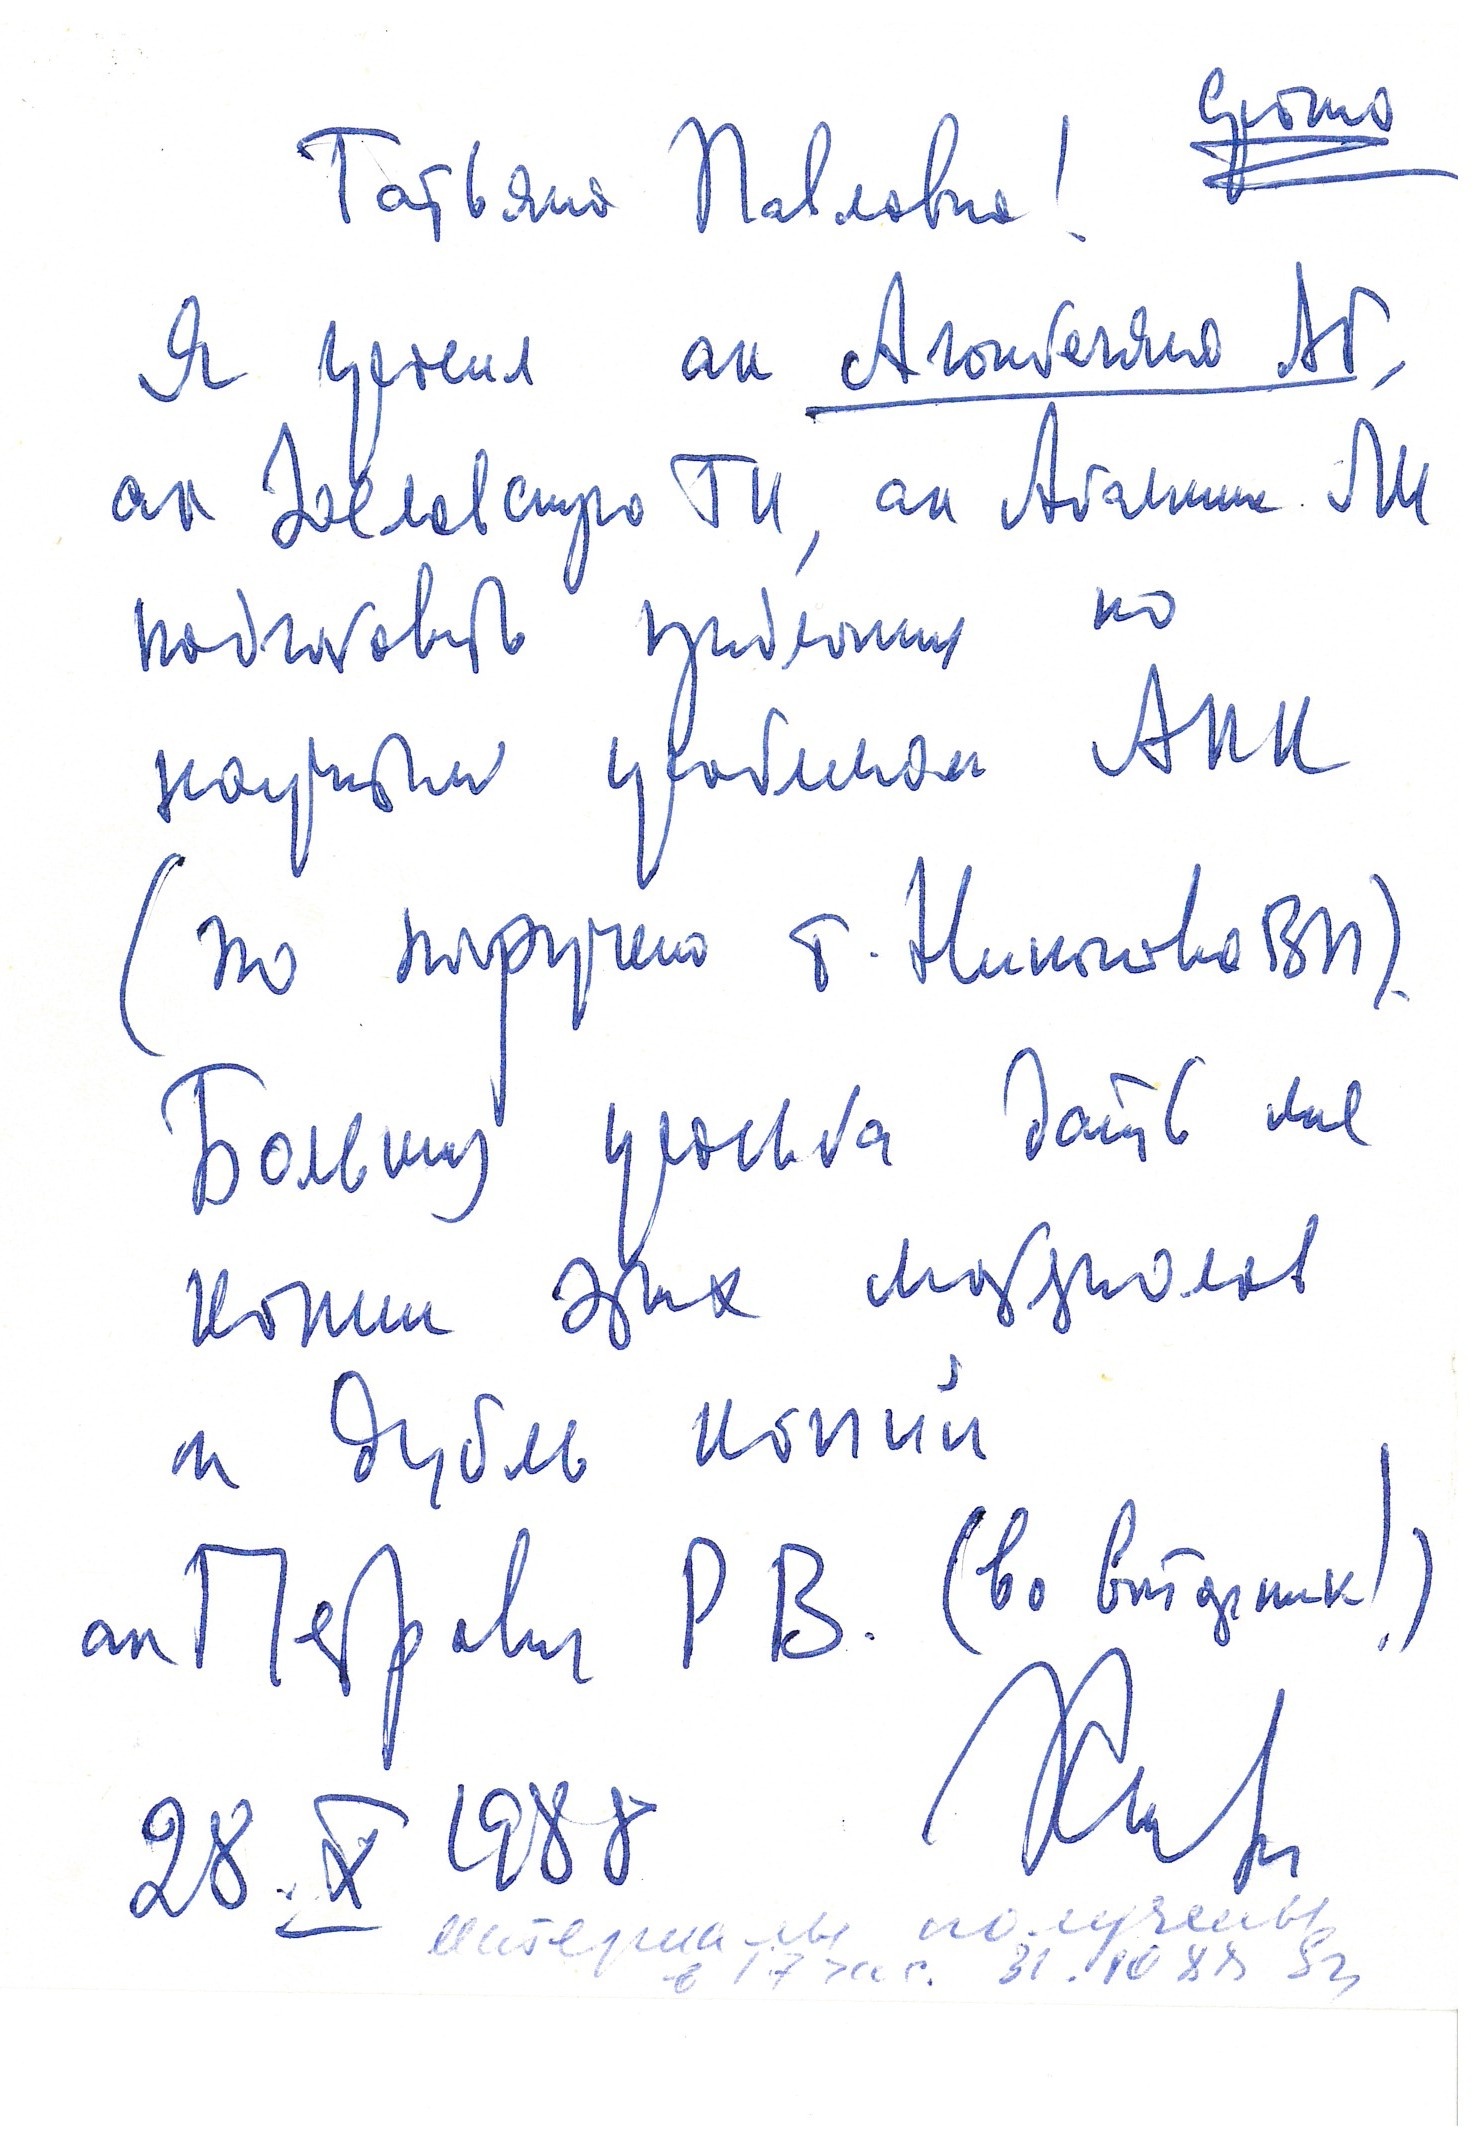 Срочно
Татьяна Павловна!
Я просил ак Аганбегяна АГ,
ак Заславскую ТИ, ак Абалкина ЛИ
подготовить предложения по
научным проблемам АПК
(по поручению т. Никонова ВП).
Большая просьба дать мне
копии этих материалов
и дубль копий
ак Петрову РВ. (во вторник!)
28.X 1988
материалы получены
в 17 час. 31.10 88